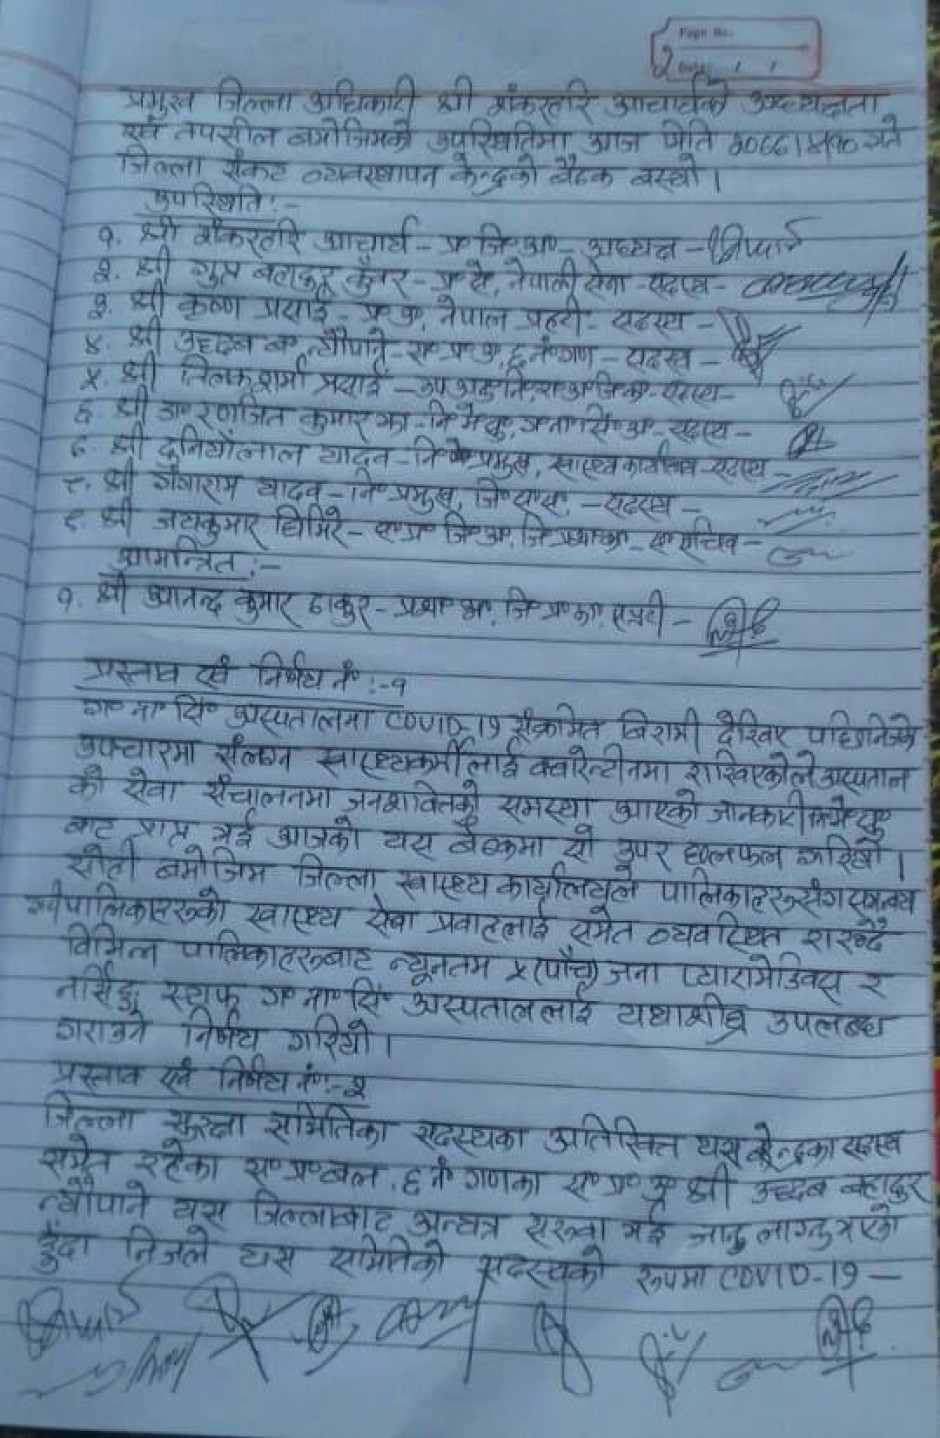 Page No.
Date: / /
प्रमुख जिल्ला अधिकारी श्री शंकरहरि आचार्यको अध्यक्षता
एवं तपसील बमोजिमको उपस्थितिमा आज मिति गते
जिल्ला संकट व्यवस्थापन केन्द्रको बैठक बस्यो ।
उपस्थिति :-
१. श्री शंकरहरि आचार्य - प्र॰जि॰अ॰ - अध्यक्ष -
२. श्री बहादुर कुँवर - नेपाली सेना - सदस्य -
३. श्री कृष्ण प्रसाईं - प्र॰उ॰, नेपाल प्रहरी - सदस्य -
४. श्री उद्दव ब॰ न्यौपाने - स॰प्र॰उ॰, ६ नं गण - सदस्य -
५. श्री तिलक शर्मा प्रसाईं - सदस्य -
६. श्री डा॰ रणजित कुमार झा - नि॰मे॰सु॰, ग॰ना॰सिं॰अ॰ - सदस्य -
७. श्री दुनियाँलाल यादव - नि॰ प्रमुख, स्वास्थ्य कार्यालय - सदस्य -
८. श्री गंगाराम यादव - नि॰ प्रमुख, जि॰स॰स॰ - सदस्य -
९. श्री जयकुमार घिमिरे - स॰प्र॰जि॰अ॰, जि॰प्र॰का॰ - स॰सचिव -
आमन्त्रित :-
१. श्री आनन्द कुमार ठाकुर - प्रशा॰अ॰, जि॰प्र॰का॰ सप्तरी -
प्रस्ताव एवं निर्णय नं॰ :- १
ग॰ना॰सिं॰ अस्पतालमा COVID-19 संक्रमित बिरामी देखिए पछि निजको
उपचारमा संलग्न स्वास्थ्यकर्मीलाई क्वारेन्टीनमा राखिएकोले अस्पताल
को सेवा संचालनमा जनशक्तिको समस्या आएको जानकारी मे॰सु॰
बाट प्राप्त भई आजको यस बैठकमा सो उपर छलफल गरियो ।
सोही बमोजिम जिल्ला स्वास्थ्य कार्यालयले पालिकाहरुसँग समन्वय
गर्न पालिकाहरुको स्वास्थ्य सेवा प्रवाहलाई समेत व्यवस्थित राख्दै
विभिन्न पालिकाहरुबाट न्यूनतम ५ (पाँच) जना प्यारामेडिक्स र
नर्सिङ्ग स्टाफ ग॰ना॰सिं॰ अस्पताललाई यथाशीघ्र उपलब्ध
गराउने निर्णय गरियो ।
प्रस्ताव एवं निर्णय नं॰ :- २
जिल्ला सुरक्षा समितिका सदस्यका अतिरिक्त यस केन्द्रका सदस्य
समेत रहेका स॰प्र॰बल, ६ नं गणका स॰प्र॰उ॰ श्री उद्दव बहादुर
न्यौपाने यस जिल्लाबाट अन्यत्र सरुवा भई जानु लाग्नु भएको
हुँदा निजले यस समितिको सदस्यको रुपमा COVID-19 -